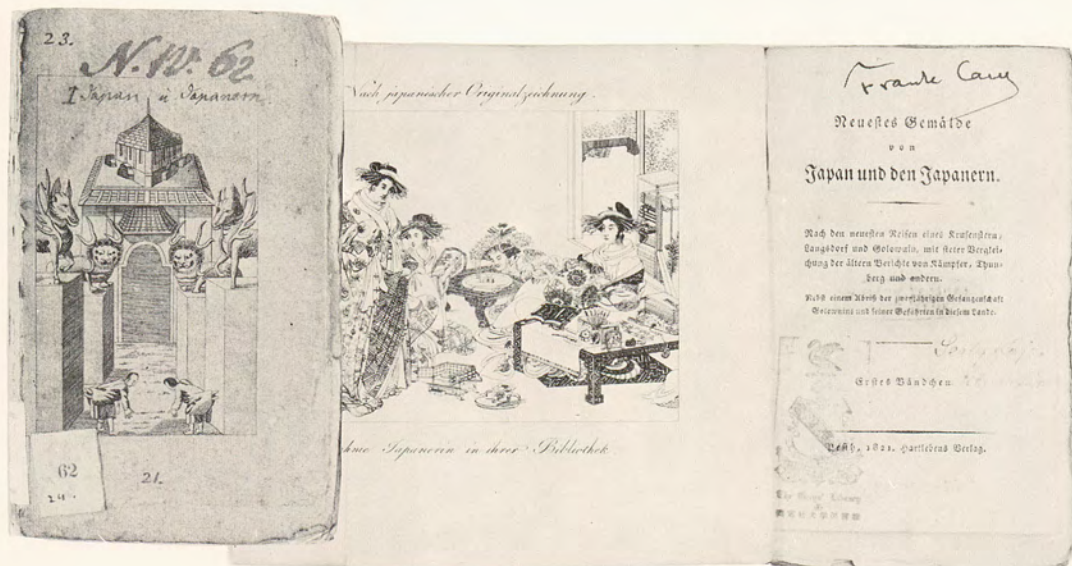 23.
N. W. 62
I Japan u Japanern
62
21.
Nach japanischer Originalzeichnung.
Japanerin in ihrer Bibliothek.
Neuestes Gemälde
von
Japan und den Japanern.
Nach den neuesten Reisen eines Krusenstern,
Langsdorf und Golownin, mit steter Verglei-
chung der ältern Berichte von Kämpfer, Thun-
berg und andern.
Nebst einem Abriß der zweijährigen Gefangenschaft
Golownins und seiner Gefährten in diesem Lande.
Erstes Bändchen.
Pesth, 1821. Hartlebens Verlag.
Library